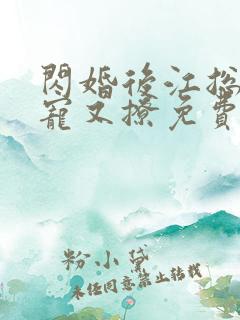 閃婚後江總
寵又撩免費
粉小黛
未經同意禁止轉載